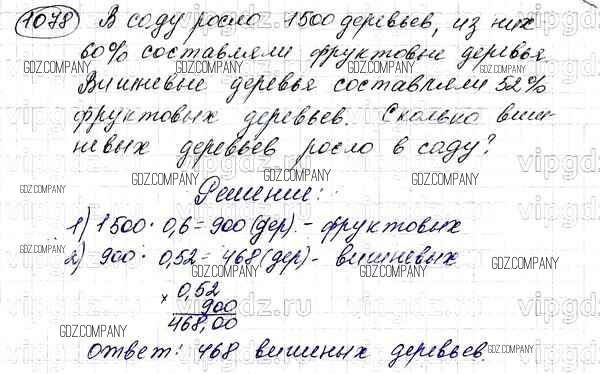 1078 В саду росло 1500 деревьев, из них
60% составляли фруктовые деревья.
Вишневые деревья составляли 52%
фруктовых деревьев. Сколько виш-
невых деревьев росло в саду?
Решение:
1) 1500 · 0,6 = 900 (дер.) - фруктовых
2) 900 · 0,52 = 468 (дер) - вишневых
0,52
× 900
468,00
Ответ: 468 вишеных деревьев.
GDZ.COMPANY
vipgdz.ru